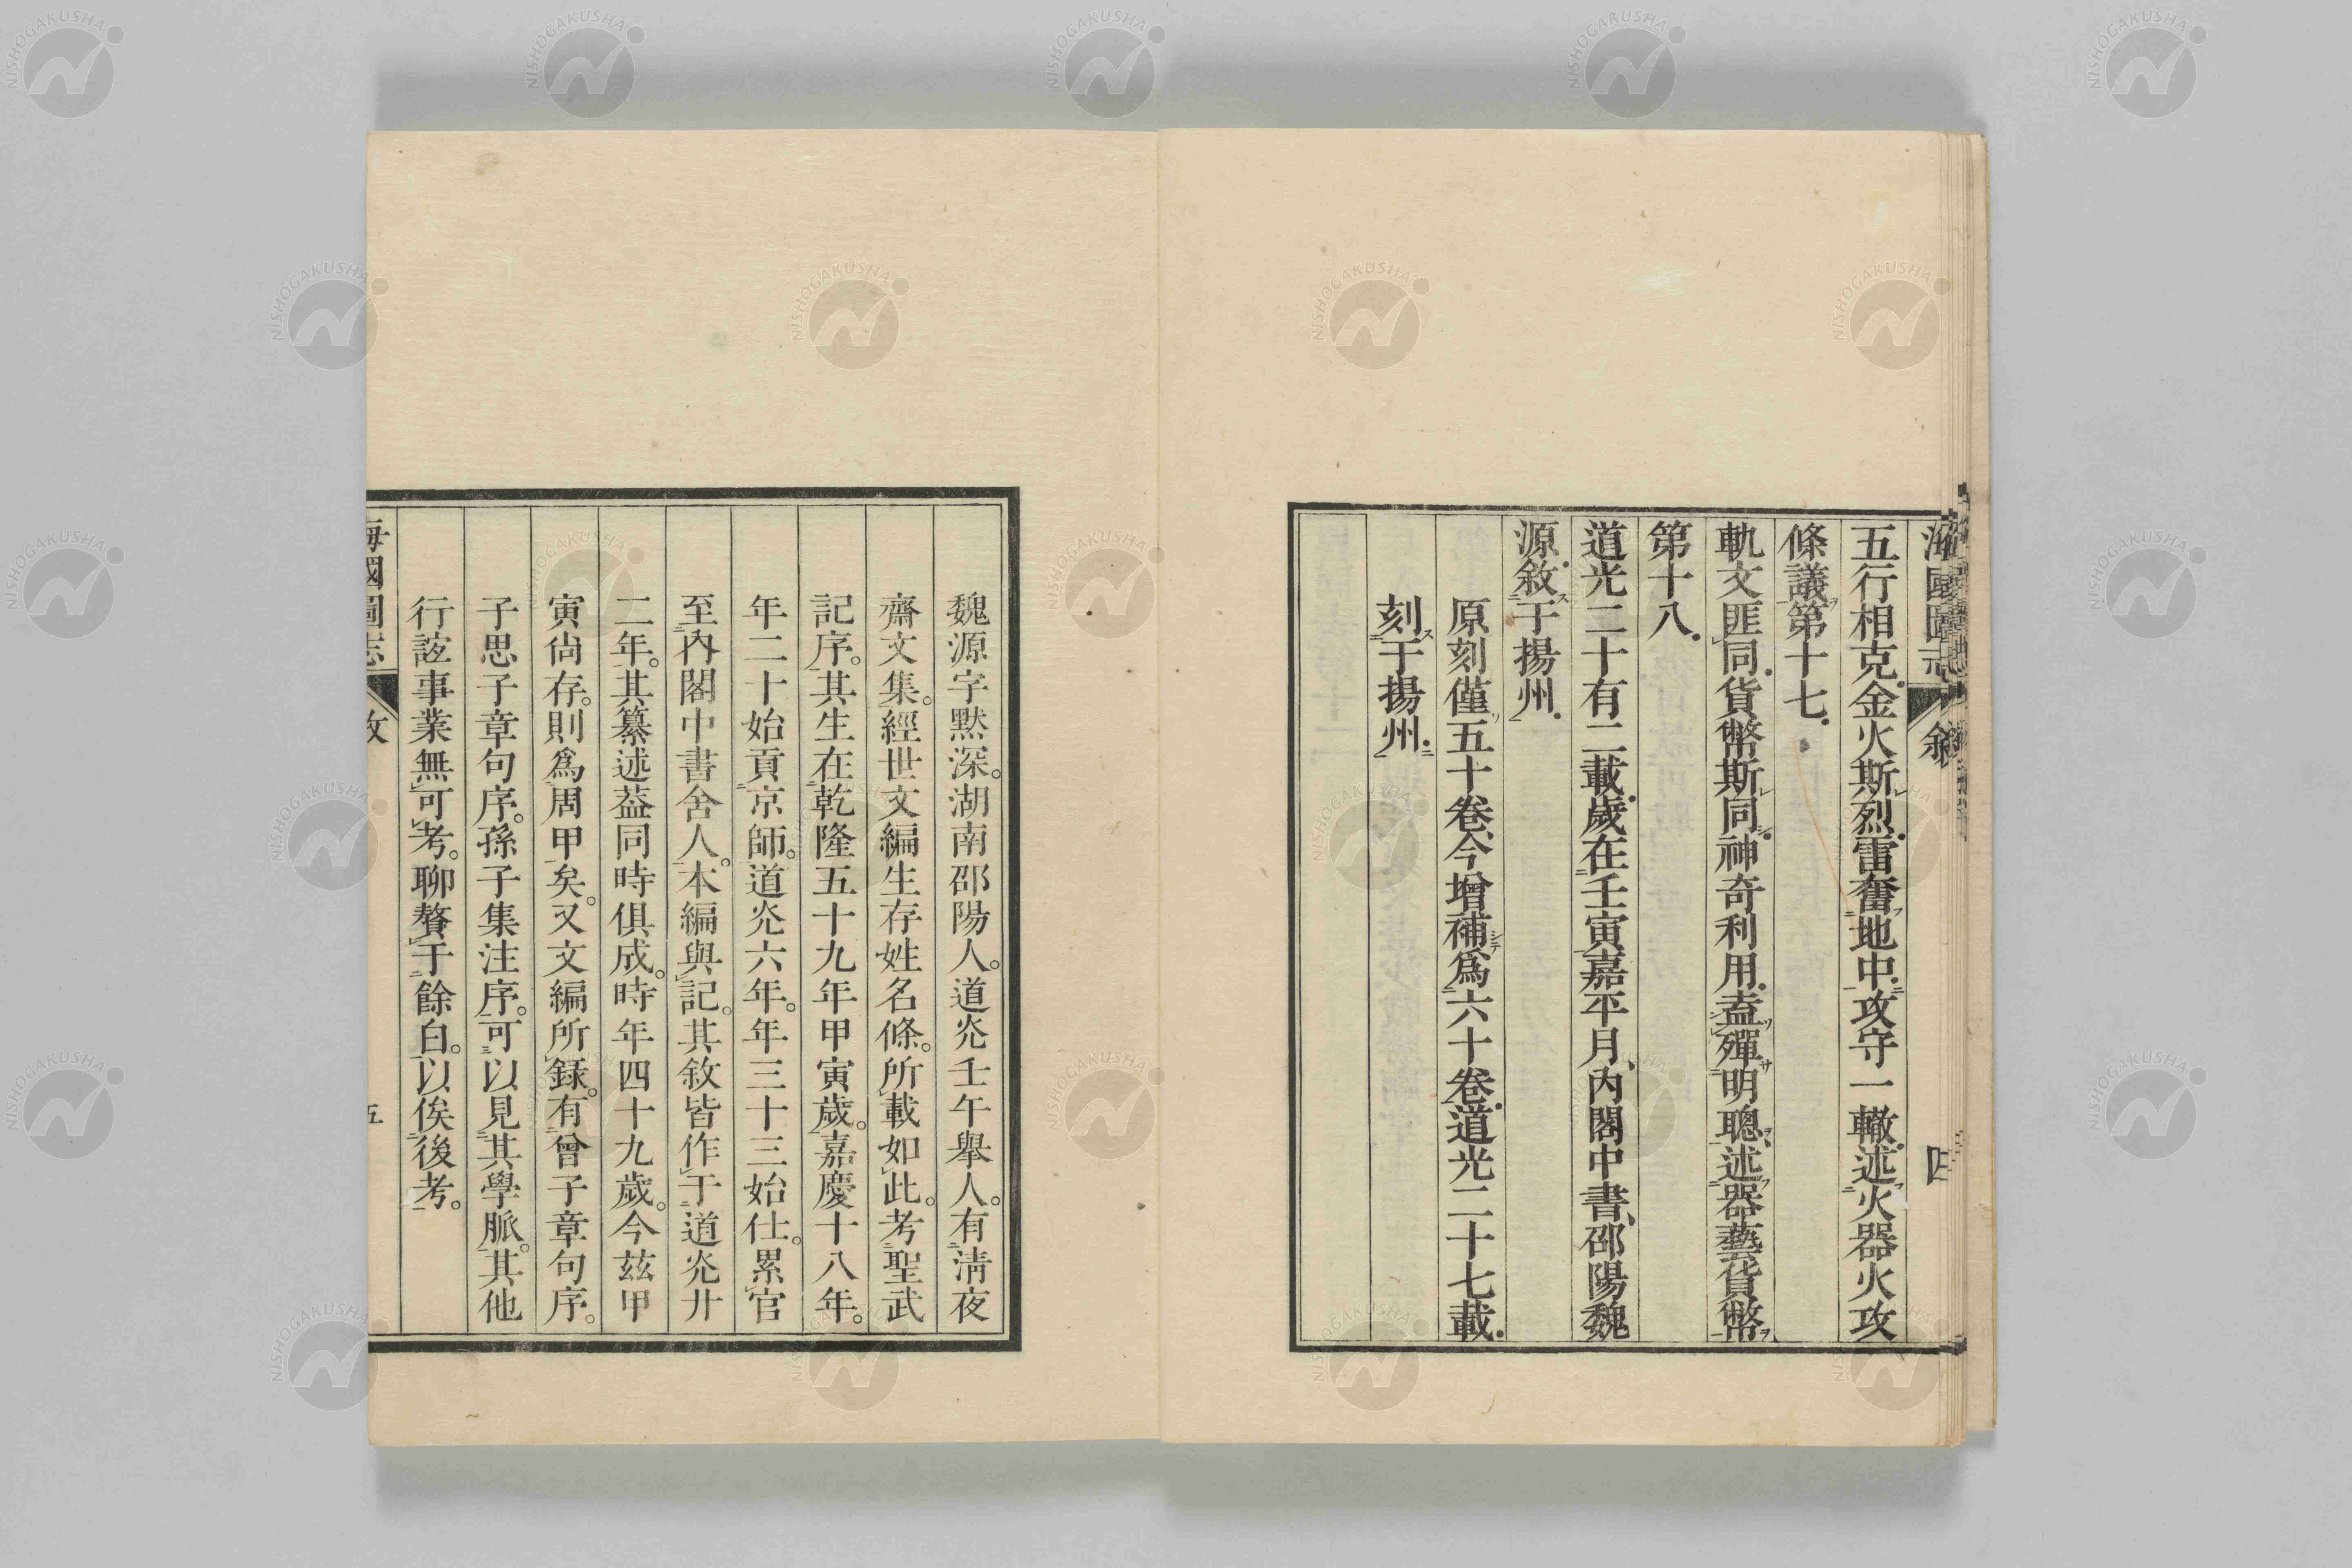 海國圖志 敘 四
五行相克。金火斯烈。雷奮地中。攻守一轍。述火器火攻
條議第十七。
軌文匪同。貨幣斯同。神奇利用。盍殫明聰。述器藝貨幣
第十八。
道光二十有二載。歲在壬寅嘉平月、內閣中書、邵陽魏
源敘于揚州。
原刻僅五十卷、今增補爲六十卷。道光二十七載。
刻于揚州。
魏源字默深。湖南邵陽人。道光壬午舉人。有淸夜
齋文集。經世文編生存姓名條。所載如此。考聖武
記序。其生在乾隆五十九年甲寅歲。嘉慶十八年。
年二十始貢京師。道光六年。年三十三始仕。累官
至內閣中書舍人。本編與記。其敘皆作于道光廿
二年。其纂述葢同時俱成。時年四十九歲。今茲甲
寅尙存。則爲周甲矣。又文編所錄。有曾子章句序。
子思子章句序。孫子集注序。可以見其學脈。其他
行誼事業無可考。聊贅于餘白。以俟後考。
海國圖志 敘 五
NISHOGAKUSHA